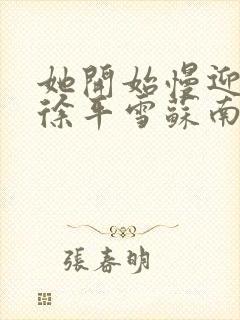 她開始慢迎
徐平雪蘇南
張春明